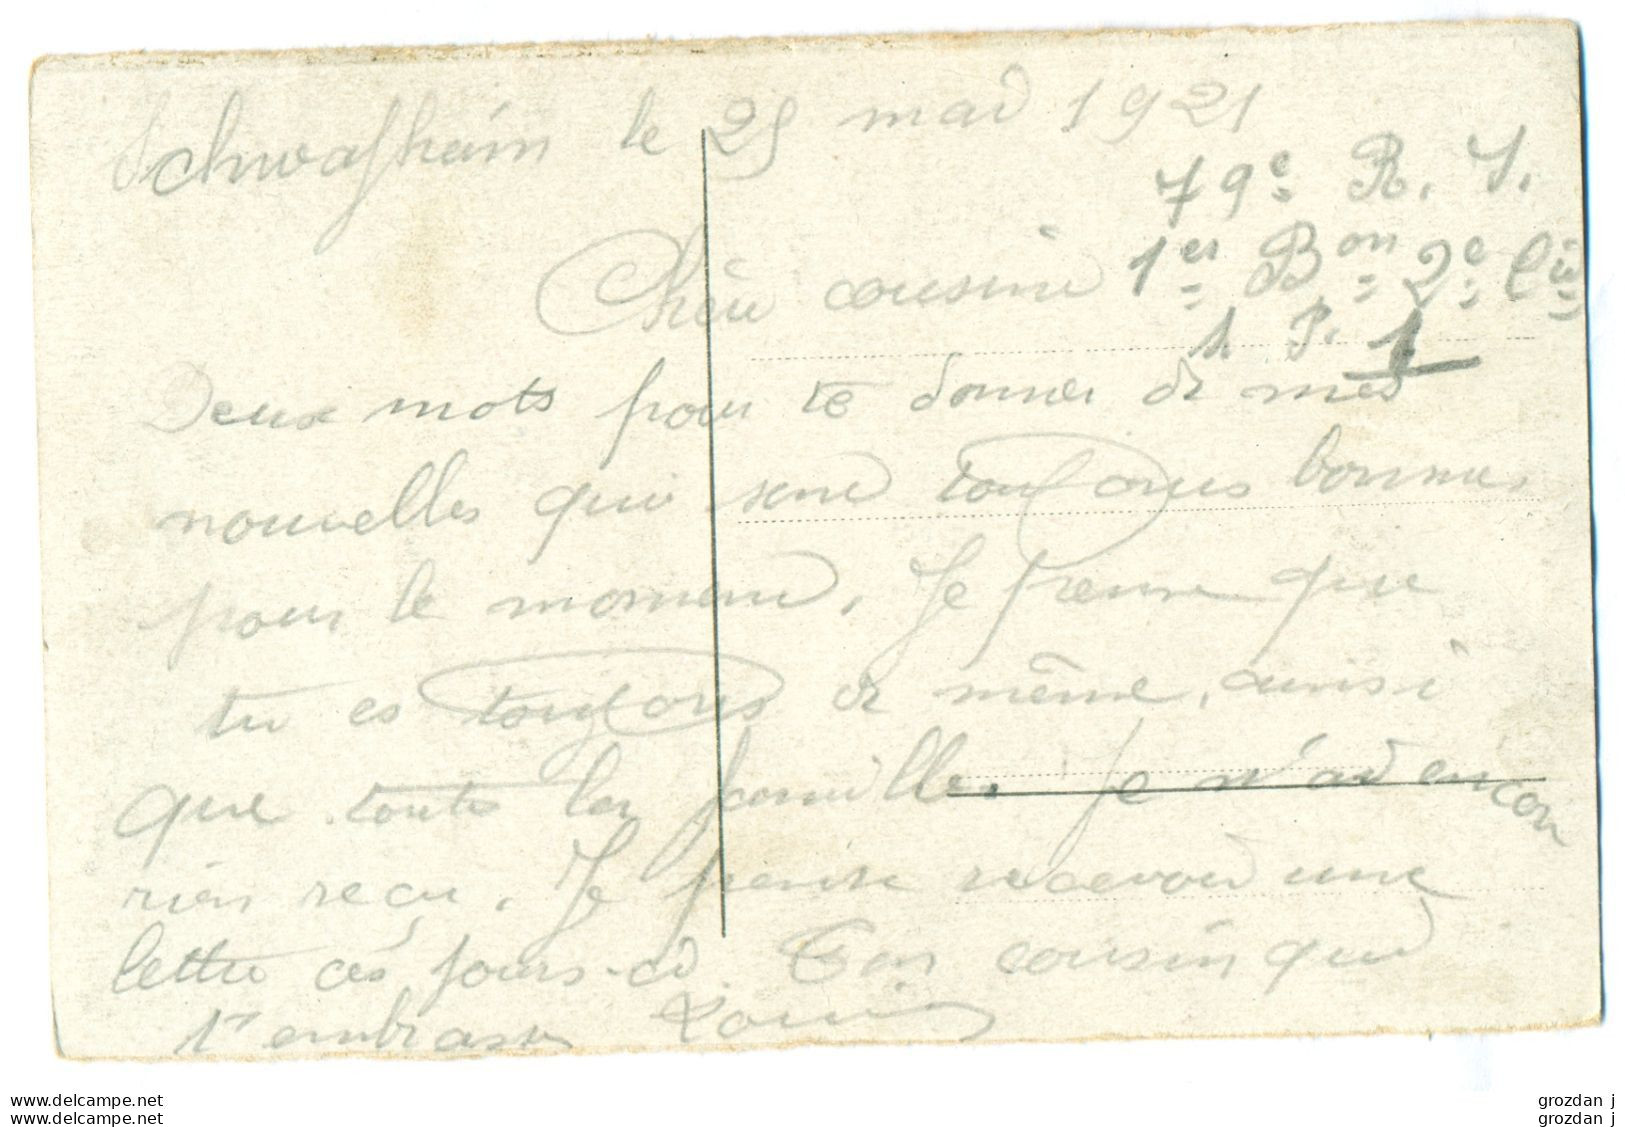 Schwafheim le 25 mai 1921
79e R. I.
1er Bon 2e Cie
1 P. 1
Chère cousine
Deux mots pour te donner de mes
nouvelles qui sont toujours bonnes
pour le moment. Je pense que
tu es toujours de même, ainsi
que toute la famille. Je n'ai encore
rien reçu. Je pense recevoir une
lettre ces jours-ci. Ton cousin qui
t'embrasse Louis
www.delcampe.net grozdan j
www.delcampe.net grozdan j